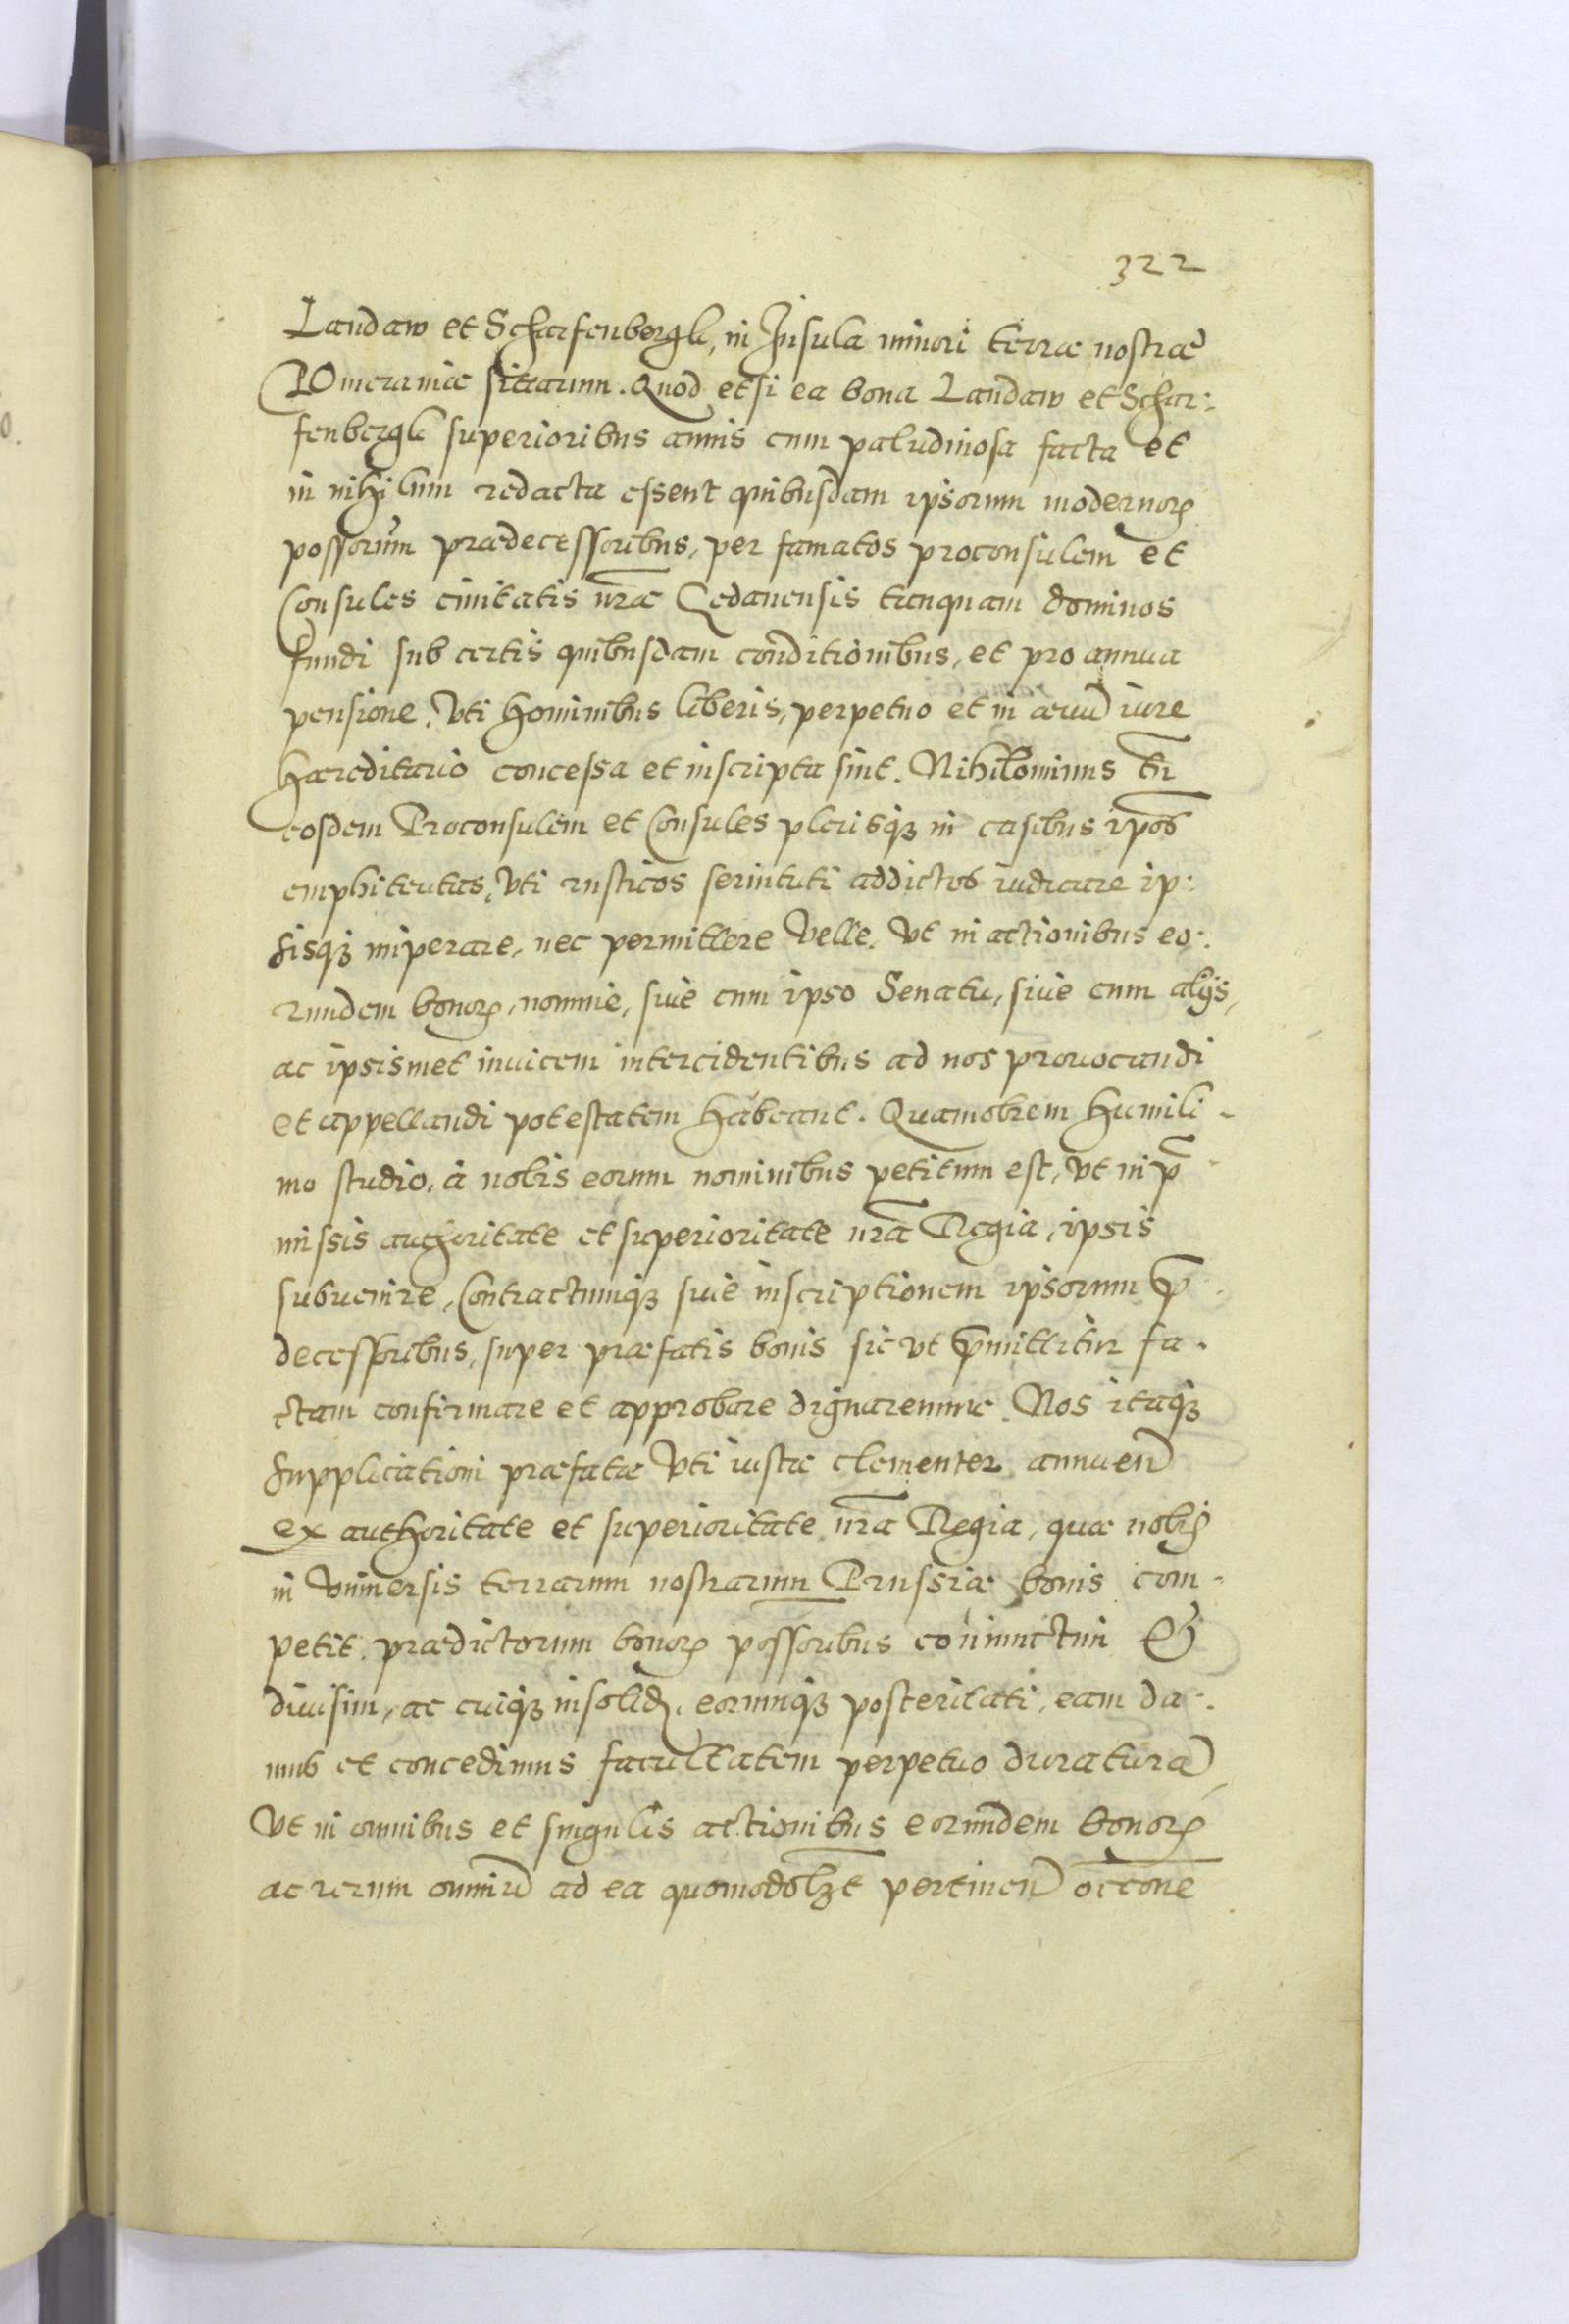 322
Landaw et Scharfenbergk, in Insula minori terræ nostræ
POmeraniæ sitarum. Quod etsi ea bona Landaw et Schar:
fenbergk superioribus annis cum paludinosa facta et
in nihilum redacta essent quibusdam ipsorum modernorꝝ
possorũm prædecessoribus, per famatos proconsulem et
Consules ciuitatis nr̃æ Gedanensis tanquam dominos
fundi sub certis quibusdam conditionibus, et pro annua
pensione, Vti hominibus liberis, perpetuo et in æuũ iure
hæreditario concessa et inscripta sint. Nihilominus tñ
eosdem Proconsulem et Consules plerisqꝫ in casibus ip̃os
emphiteutas, Vti rusticos seruituti addictos iudicare ip:
sisqꝫ imperare, nec permittere Velle. Vt in actionibus eo:
rundem bonorꝝ, nomine, siue cum ipso Senatu, siue cum alijs,
ac ipsismet inuicem intercidentibus ad nos prouocandi
et appellandi potestatem habeant. Quamobrem humili-
mo studio, à nobis eorum nominibus petitum est, Vt in p̃-
missis authoritate et superioritate nr̃a Regia, ipsis
subuenire, Contractumqꝫ siue inscriptionem ipsorum p̃-
decessoribus, super præfatis bonis sic vt p̃mittitur fa-
ctam confirmare et approbare dignaremur. Nos itaqꝫ
Supplicationi præfatæ Vti iustæ clementer annuen̄
ex authoritate et superioritate nr̃a Regia, quæ nobis
in Vniuersis terrarum nostrarum Prussiæ bonis com-
petit, prædictorum bonorꝝ possoribus coniunctim &
diuisim, ac cuiqꝫ insolidꝝ, eorumqꝫ posteritati, eam da-
mus et concedimus facultatem perpetuo duraturã,
Vt in omnibus et singulis actionibus eorundem bonorꝝ
ac rerum omniũ ad ea quomodolꝫt pertinen̄ occ̃one